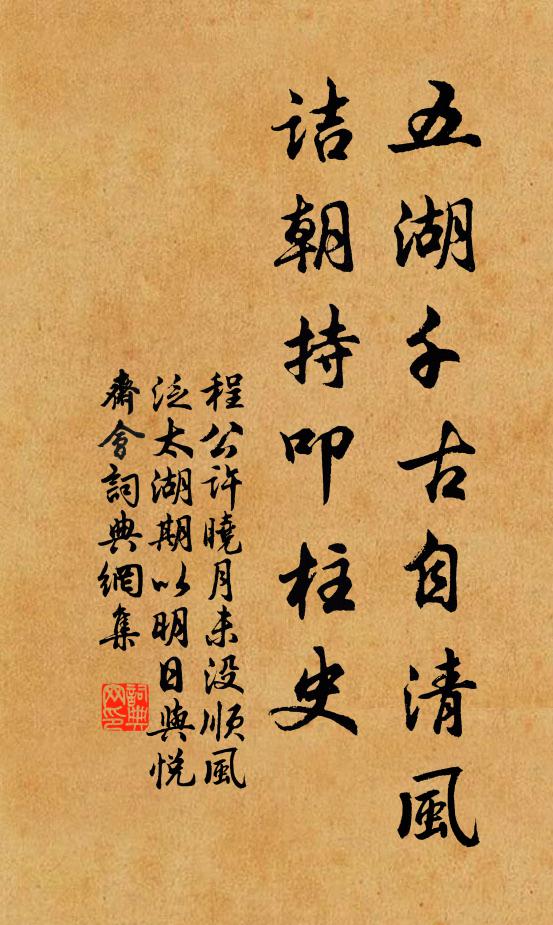 五湖千古自清風
詰朝持叩柱史
程公許曉月未没順風
泛太湖期以明日與悅
齋會詞典網集
詞典
网印